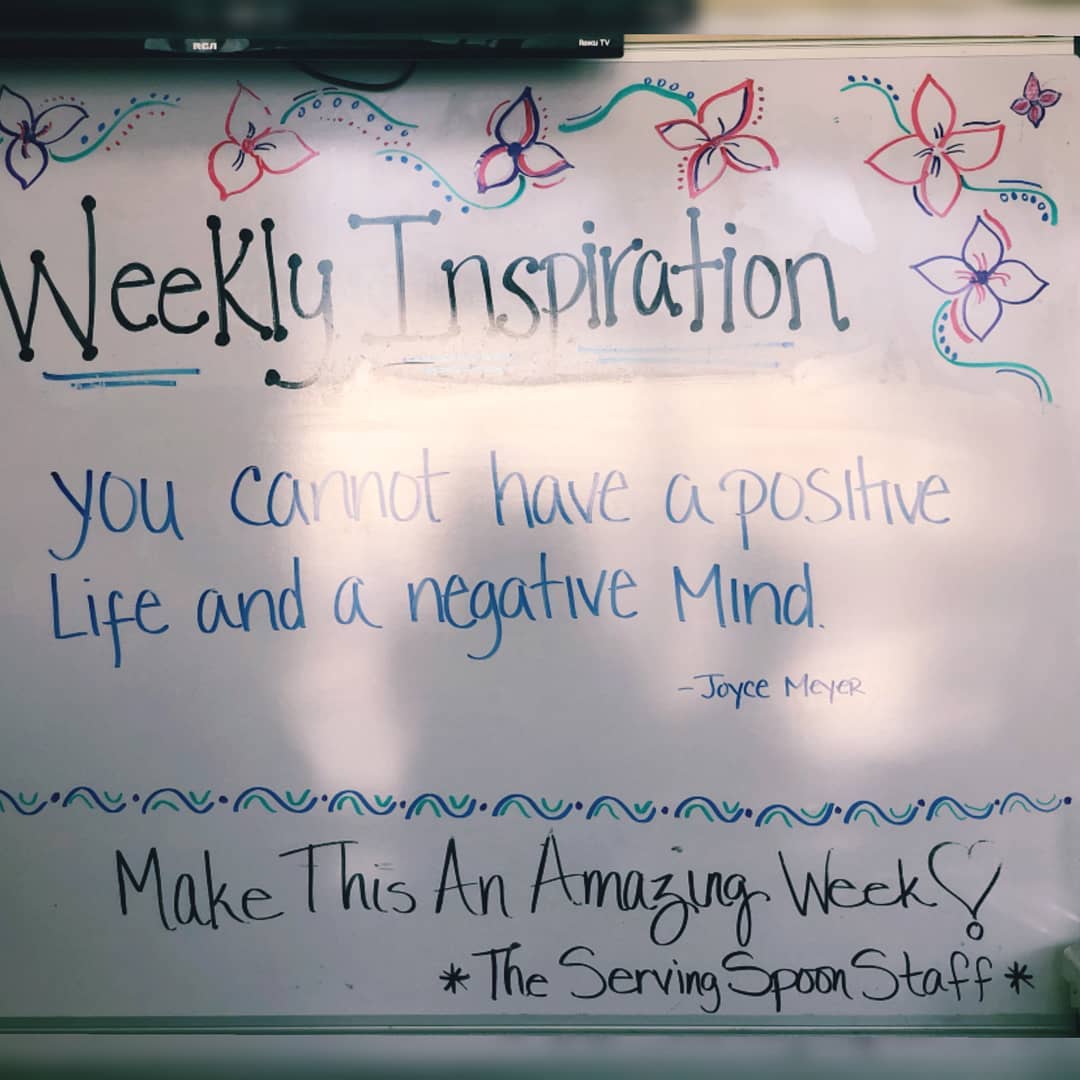 RCA
Roku TV
Weekly Inspiration
you cannot have a positive
Life and a negative Mind.
-Joyce Meyer
Make This An Amazing Week!
*The Serving Spoon Staff*